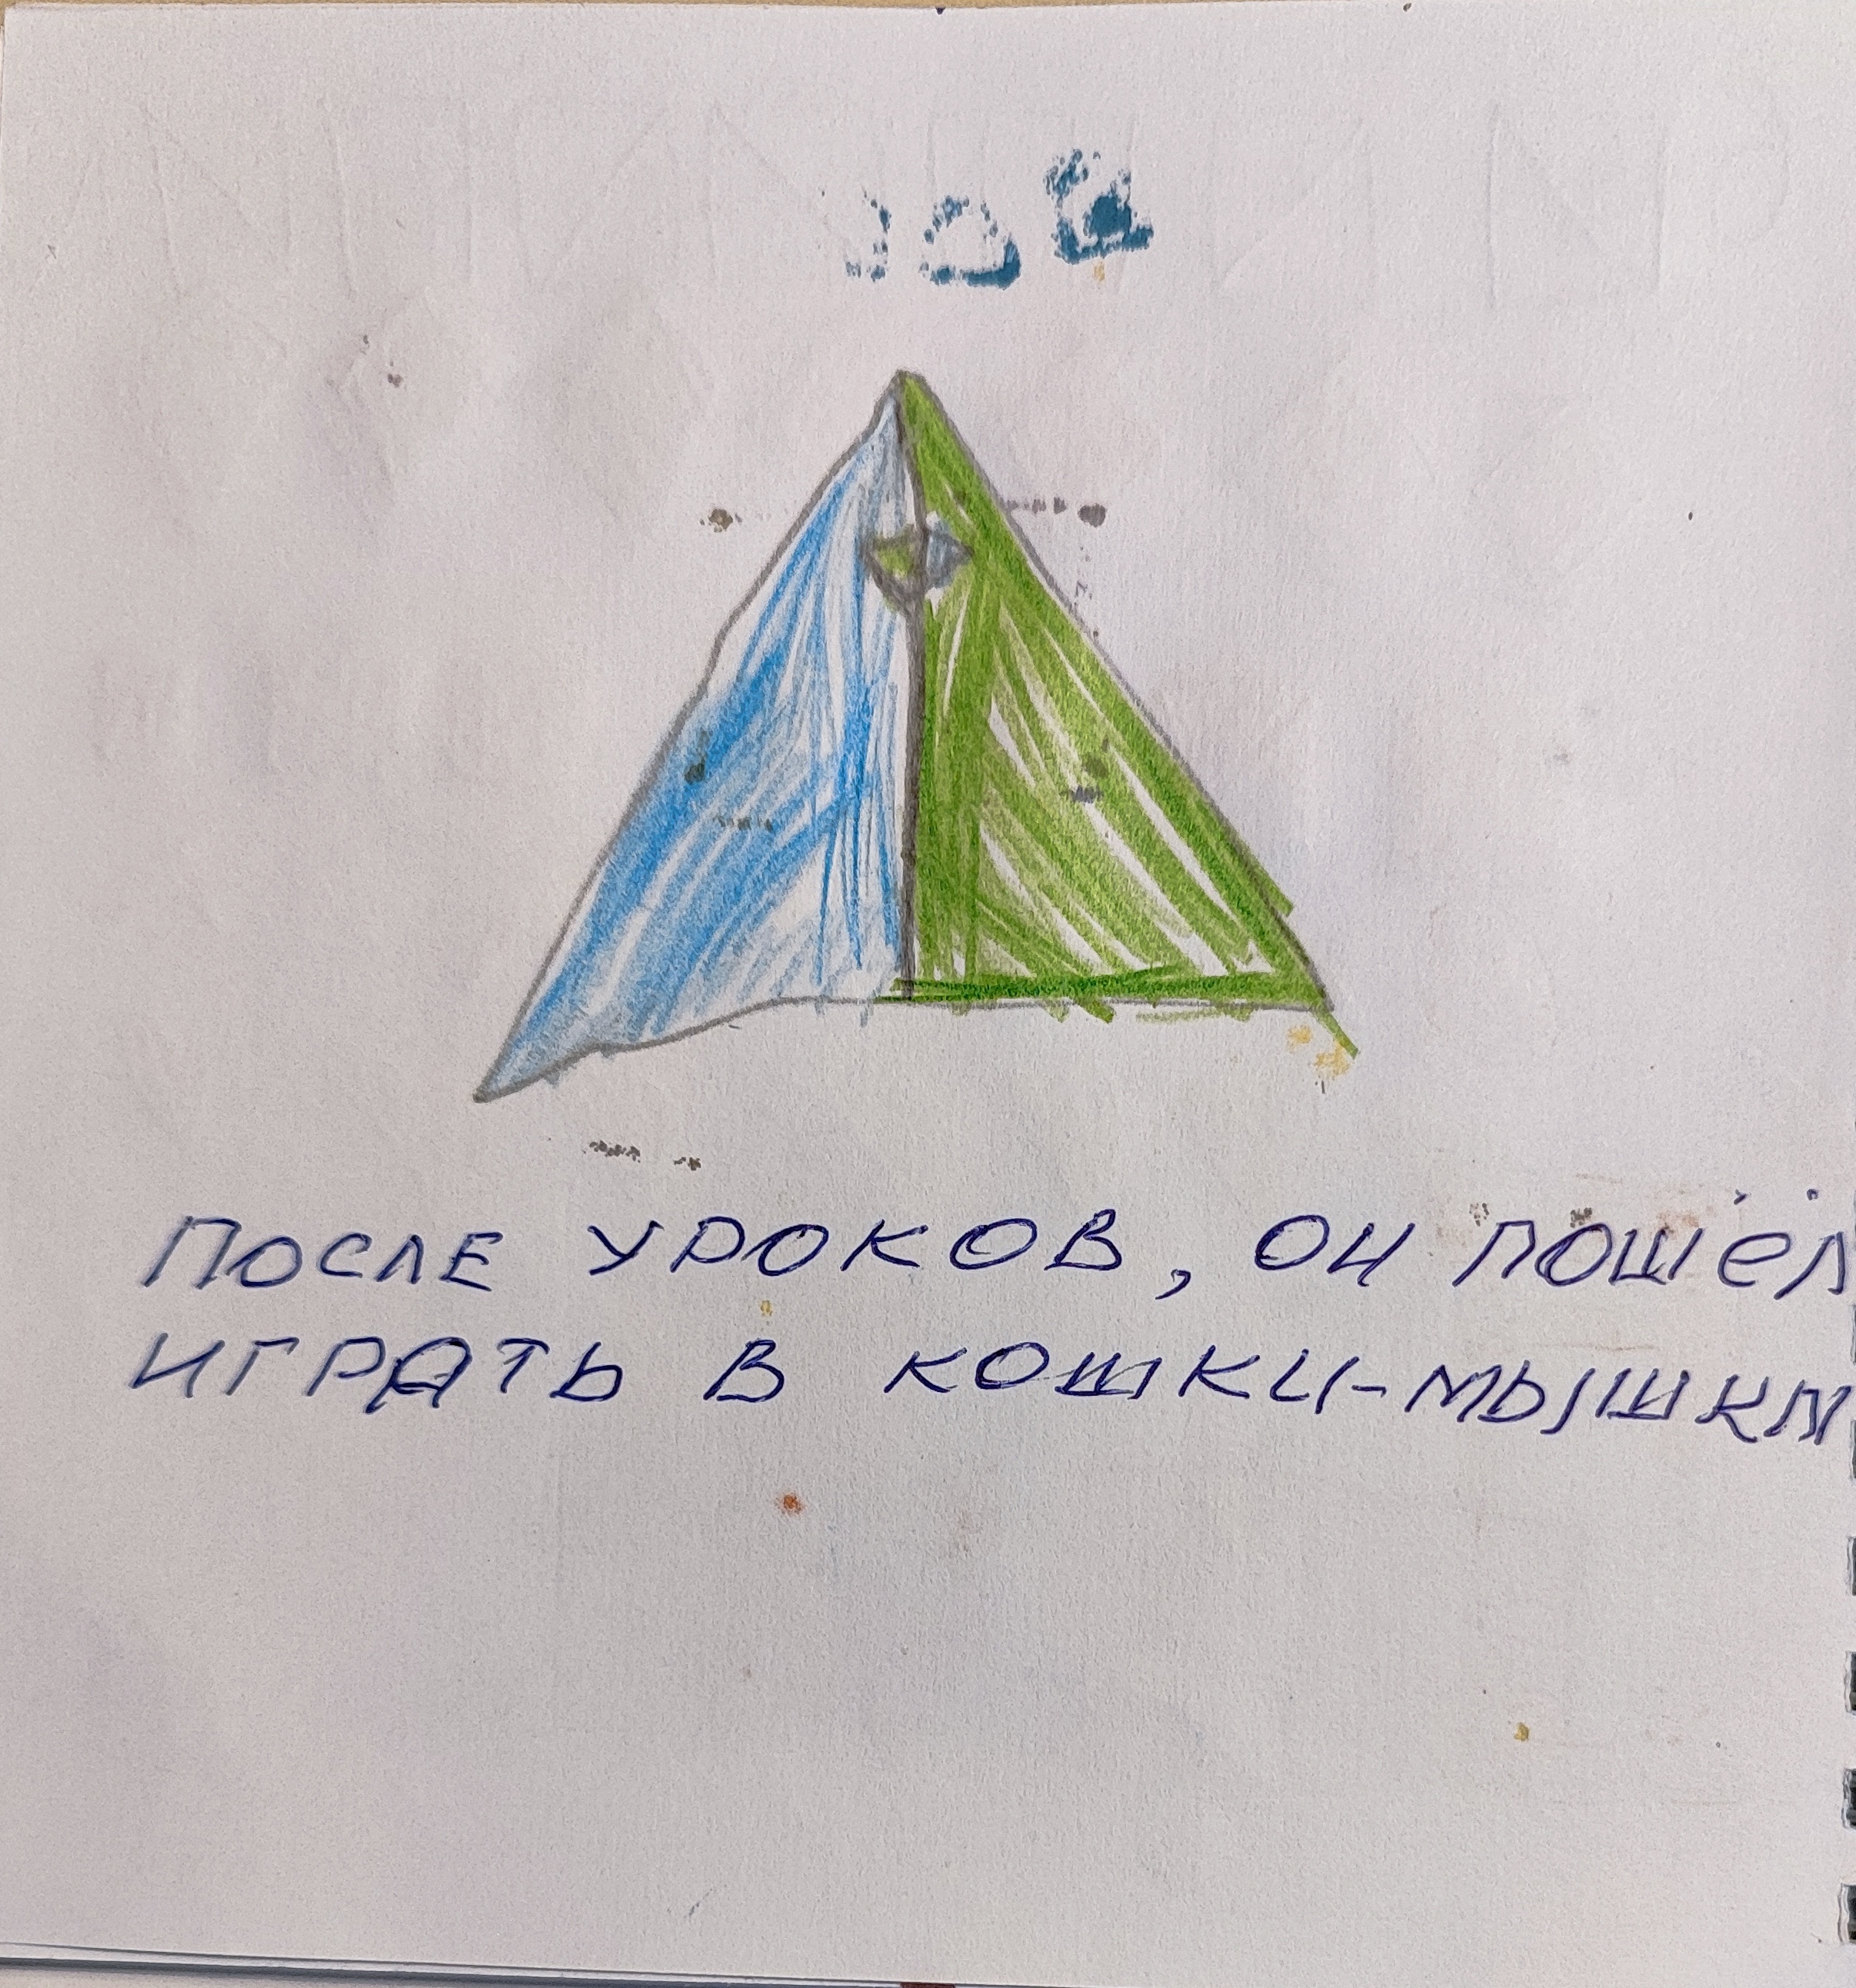 ПОСЛЕ УРОКОВ, ОН ПОШЁЛ
ИГРАТЬ В КОШКИ-МЫШКИ